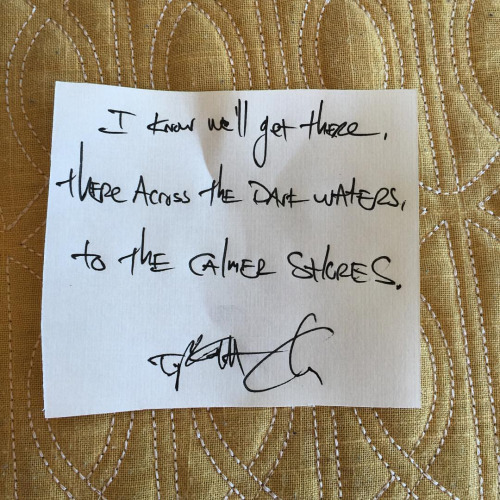 I know we'll get there,
there Across the Dark waters,
to the calmer shores.